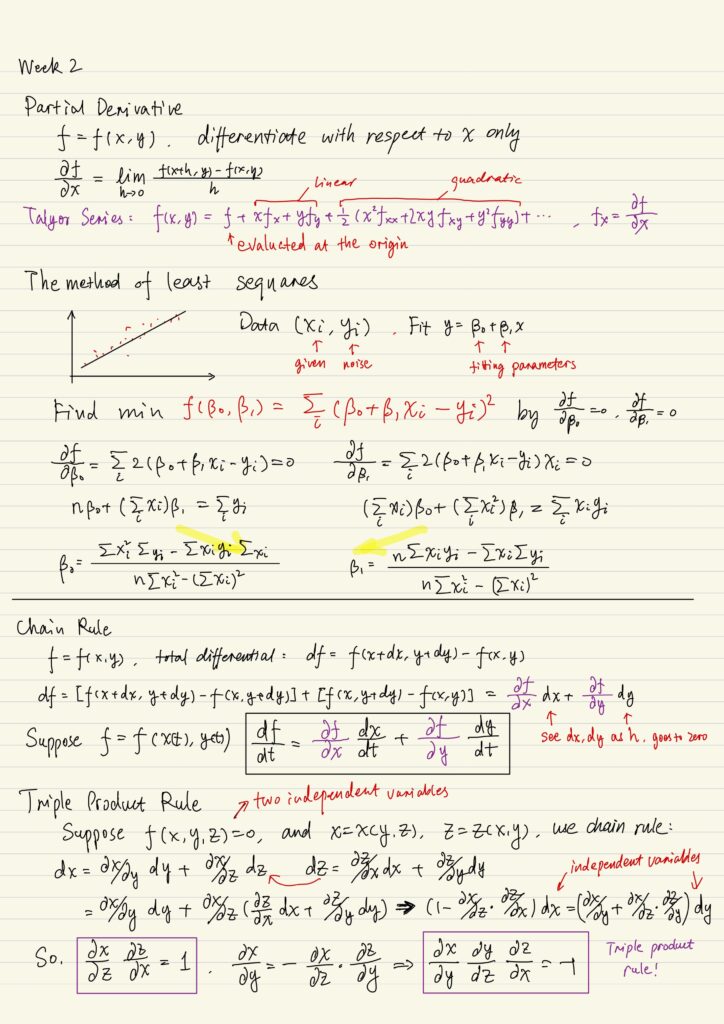 Week 2
Partial Derivative
f = f(x,y) . differentiate with respect to x only
∂f/∂x = lim h→0 (f(x+h, y) - f(x,y))/h
linear quadratic
Talyor Series: f(x,y) = f + xfx + yfy + 1/2 (x²fxx + 2xyfxy + y²fyy) + ··· , fx = ∂f/∂x
↑ evaluated at the origin
The method of least sequares
Data (xi, yi) . Fit y = β0 + β1x
↑ given ↑ noise ↑ ↑ fitting parameters
Find min f(β0, β1) = Σi (β0 + β1xi - yi)² by ∂f/∂β0 = 0 , ∂f/∂β1 = 0
∂f/∂β0 = Σi 2(β0 + β1xi - yi) = 0 ∂f/∂β1 = Σi 2(β0 + β1xi - yi)xi = 0
nβ0 + (Σi xi)β1 = Σi yi (Σi xi)β0 + (Σi xi²)β1 = Σi xiyi
β0 = (Σxi² Σyi - Σxiyi Σxi)/(nΣxi² - (Σxi)²) β1 = (nΣxiyi - ΣxiΣyi)/(nΣxi² - (Σxi)²)
Chain Rule
f = f(x,y) . total differential: df = f(x+dx, y+dy) - f(x,y)
df = [f(x+dx, y+dy) - f(x, y+dy)] + [f(x, y+dy) - f(x,y)] = ∂f/∂x dx + ∂f/∂y dy
Suppose f = f(x(t), y(t)) df/dt = ∂f/∂x dx/dt + ∂f/∂y dy/dt
see dx, dy as h. goes to zero
Triple Product Rule
two independent variables
Suppose f(x,y,z)=0, and x=x(y,z), z=z(x,y), use chain rule:
dx = ∂x/∂y dy + ∂x/∂z dz dz = ∂z/∂x dx + ∂z/∂y dy
independent variables
= ∂x/∂y dy + ∂x/∂z (∂z/∂x dx + ∂z/∂y dy) ⇒ (1 - ∂x/∂z · ∂z/∂x) dx = (∂x/∂y + ∂x/∂z · ∂z/∂y) dy
So. ∂x/∂z ∂z/∂x = 1 . ∂x/∂y = - ∂x/∂z · ∂z/∂y ⇒ ∂x/∂y ∂y/∂z ∂z/∂x = -1
Triple product
rule!